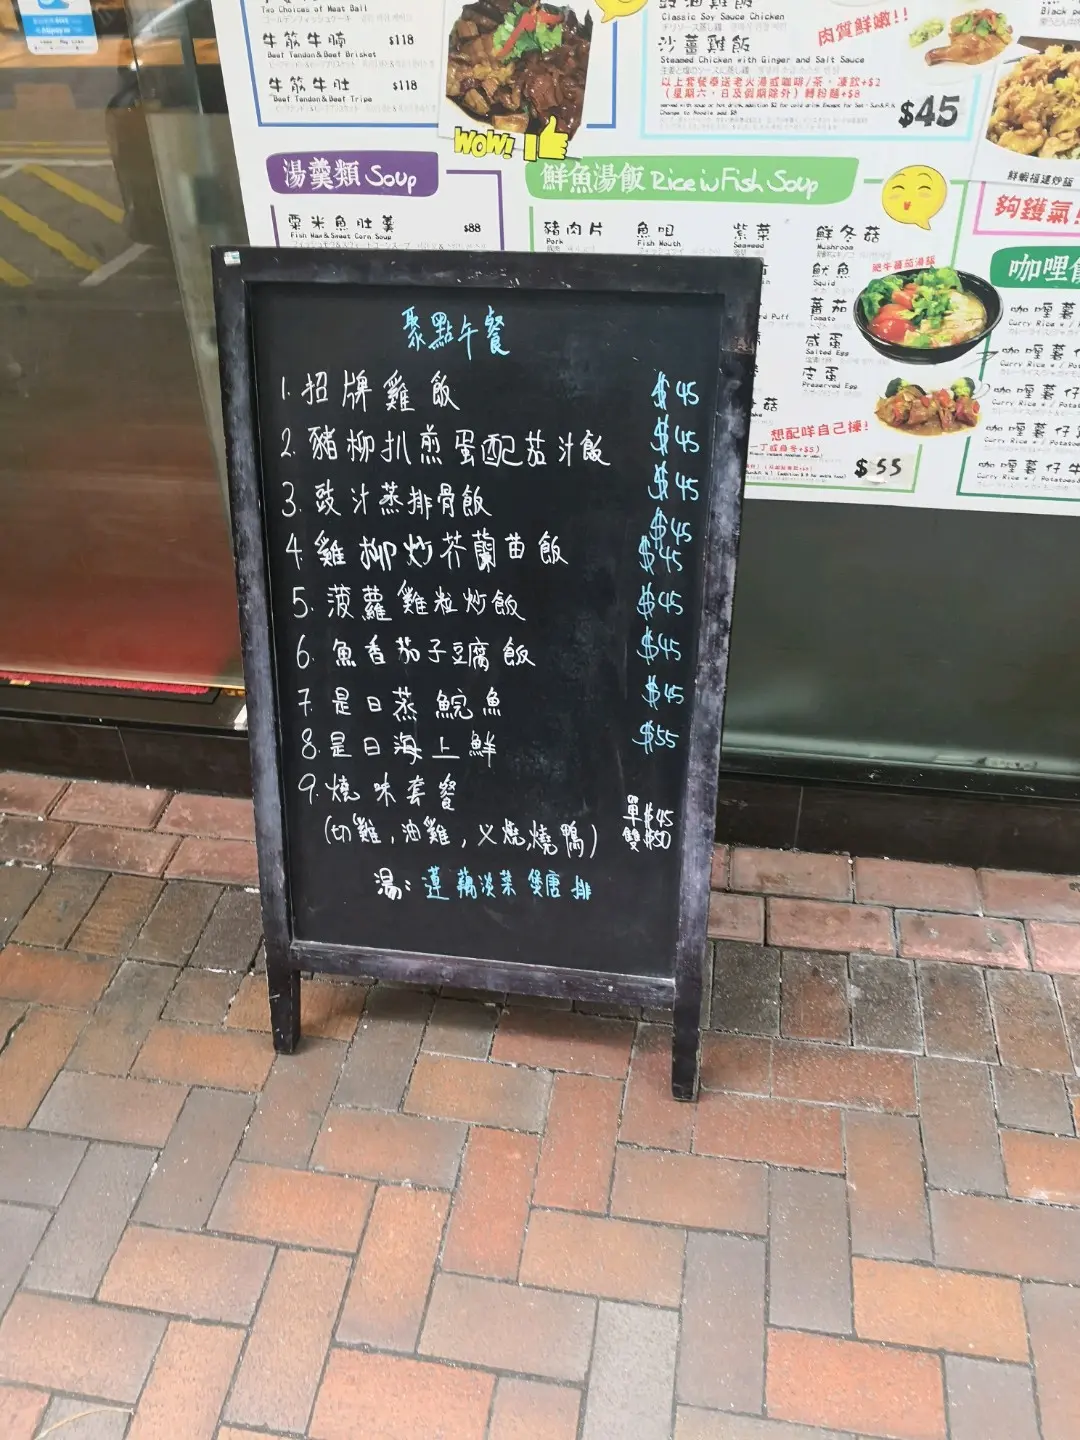 Two Choices of Meat Ball
牛筋牛腩 $118
Beef Tendon & Beef Brisket
牛筋牛肚 $118
Beef Tendon & Beef Tripe
WOW!
湯羹類 Soup
粟米魚肚羹 $88
Fish Maw & Sweet Corn Soup
豉油雞飯
Classic Soy Sauce Chicken
沙薑雞飯
Steamed Chicken with Ginger and Salt Sauce
以上套餐奉送老火湯或咖啡/茶。凍飲+$2
(星期六、日及假期除外) 轉粉麵+$8
Change to Noodle add $8
肉質鮮嫩!!
$45
鮮魚湯飯 Rice w Fish Soup
豬肉片 魚咀 紫菜 鮮冬菇
Pork Fish Mouth Seaweed Mushroom
魷魚
Squid
蕃茄
Tomato
咸蛋
Salted Egg
皮蛋
Preserved Egg
肥牛蕃茄湯飯
想配咩自己揀!
$55
鮮蝦福建炒飯
夠鑊氣!
咖哩
咖哩薯仔
Curry Rice
咖哩薯仔
Curry Rice
咖哩薯仔
Curry Rice
咖哩薯仔牛
Curry Rice
聚點午餐
1. 招牌雞飯 $45
2. 豬柳扒煎蛋配茄汁飯 $45
3. 豉汁蒸排骨飯 $45
$45
4. 雞柳炒芥蘭苗飯 $45
5. 菠蘿雞粒炒飯 $45
6. 魚香茄子豆腐飯 $45
7. 是日蒸鯇魚 $45
8. 是日海上鮮 $55
9. 燒味套餐
單$45
(切雞,油雞,义燒,燒鴨) 雙$50
湯: 蓮藕淡菜煲唐排